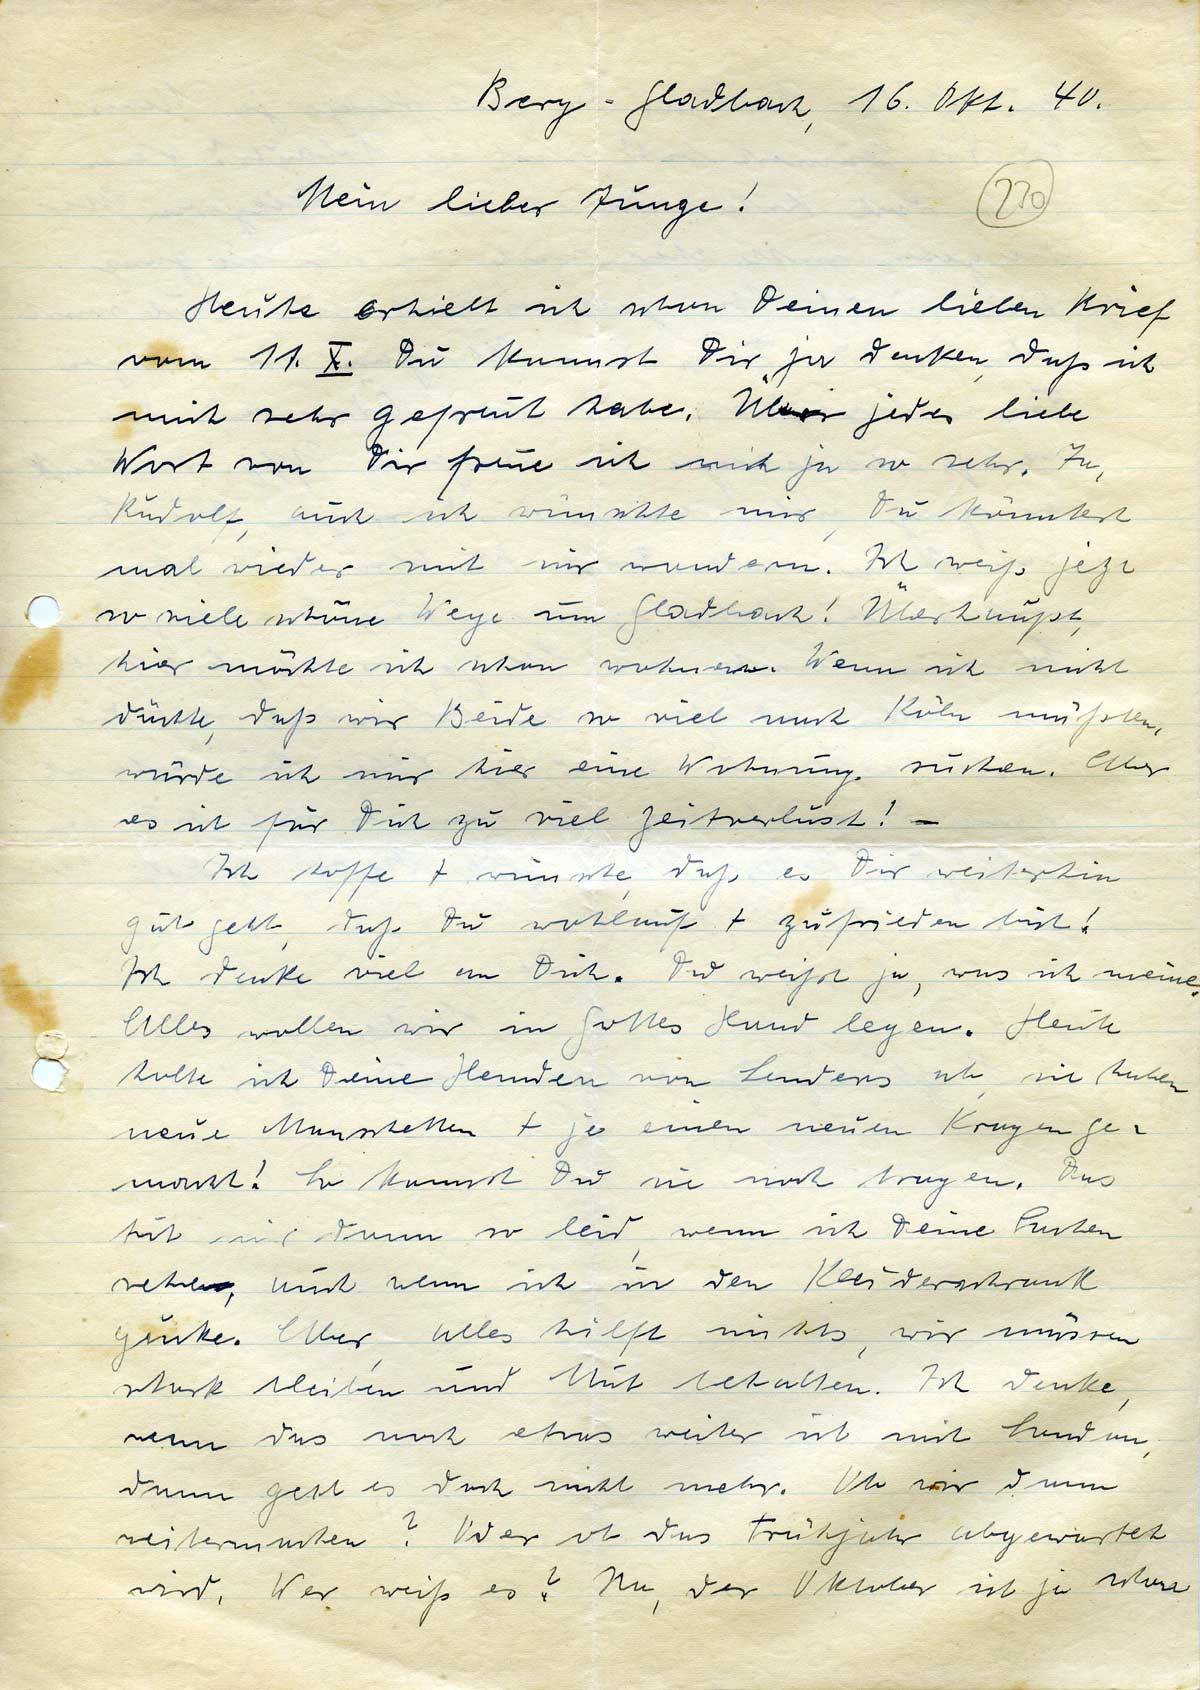 Berg-Gladbach, 16. Okt. 40.
230
Mein lieber Junge!
Heute erhielt ich schon Deinen lieben Brief
vom 11. X. Du kannst Dir ja denken, daß ich
mich sehr gefreut habe. Über jedes liebe
Wort von Dir freue ich mich ja so sehr. Ja,
Rudolf, auch ich wünschte mir, Du könntest
mal wieder mit mir wandern. Ich weiß jetzt
so viele schöne Wege um Gladbach! Überhaupt,
hier möchte ich schon wohnen. Wenn ich nicht
dächte, daß wir Beide so viel nach Köln müßten,
würde ich mir hier eine Wohnung suchen. Aber
es ist für Dich zu viel Zeitverlust! –
Ich hoffe + wünsche, daß es Dir weiterhin
gut geht, daß Du wohlauf + zufrieden bist!
Ich denke viel an Dich. Du weißt ja, was ich meine.
Alles wollen wir in Gottes Hand legen. Heute
holte ich Deine Hemden von Lenders ab, sie haben
neue Manschetten + je einen neuen Kragen ge-
macht! So kannst Du sie noch tragen. Das
tut mir dann so leid, wenn ich Deine Sachen
sehe, auch wenn ich in den Kleiderschrank
gucke. Aber, alles hilft nichts, wir müssen
stark bleiben und Mut behalten. Ich denke,
wenn das noch etwas weiter ist mit London,
dann geht es doch nicht mehr. Ob wir dann
weitermachen? Oder ob das Frühjahr abgewartet
wird. Wer weiß es? Na, der Oktober ist ja schon